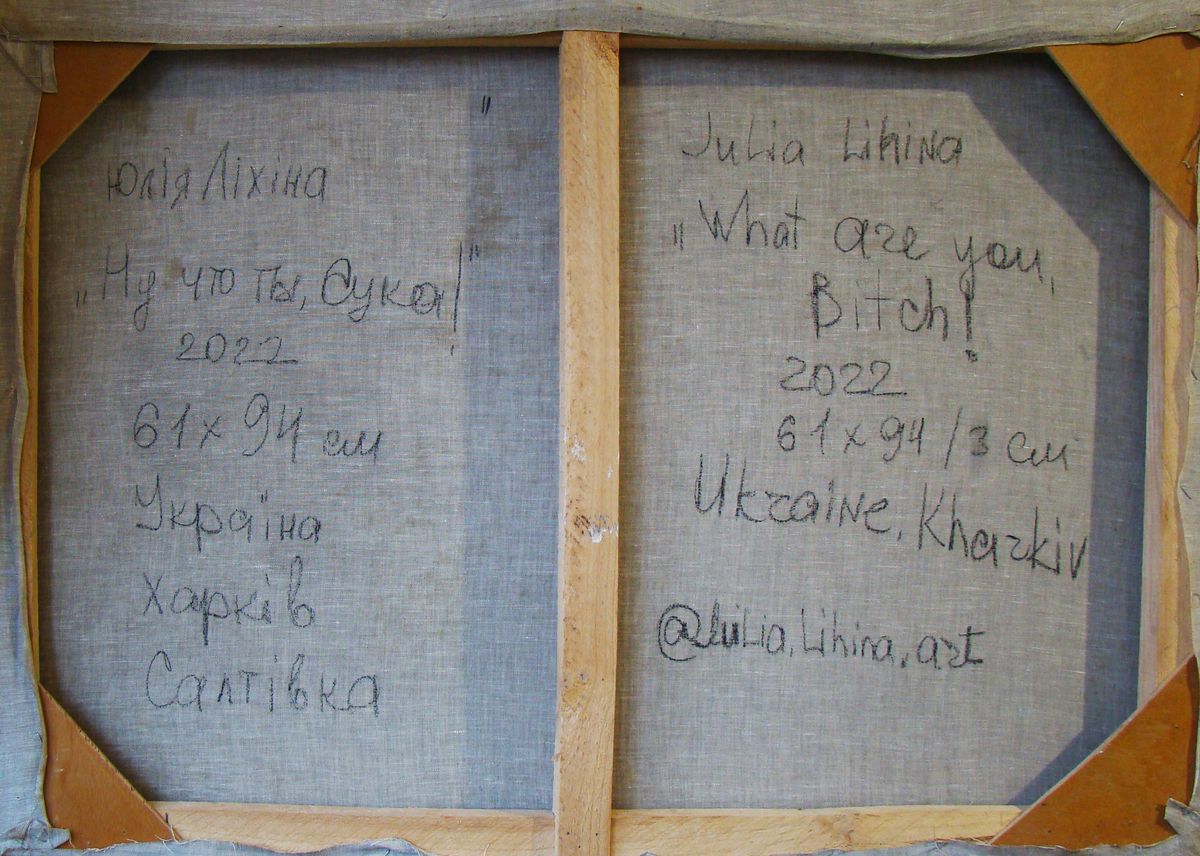 Юлія Ліхіна
„Ну что ты, Сука!"
2022
61 x 94 см
Україна
Харків
Салтівка
Julia Lihina
„What are you,
Bitch!
2022
61 x 94 / 3 см
Ukraine, Kharkiv
@Julia.Lihina.art